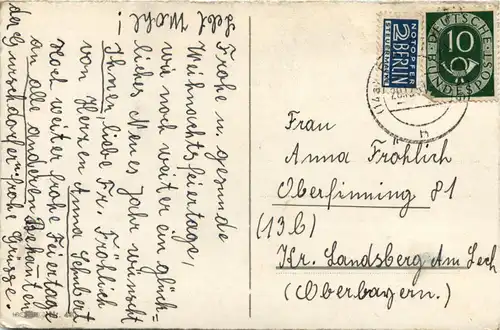 Lebt Wohl!
Frohe u. gesunde
Weihnachtsfeiertage
wie noch weiter ein glück-
liches Neues Jahr wünscht
Ihnen, liebe Fr. Fröhlich
von Herzen Anna Schubert
Noch weiter frohe Feiertage
an alle anderen Bekannten
der Gurschdorfer u. frohe Grüsse.
NOTOPFER
2 BERLIN
STEUERMARKE
DEUTSCHE BUNDESPOST
10
Frau
Anna Fröhlich
Oberfinning 81
(13b)
Kr. Landsberg Am Lech
(Oberbayern.)